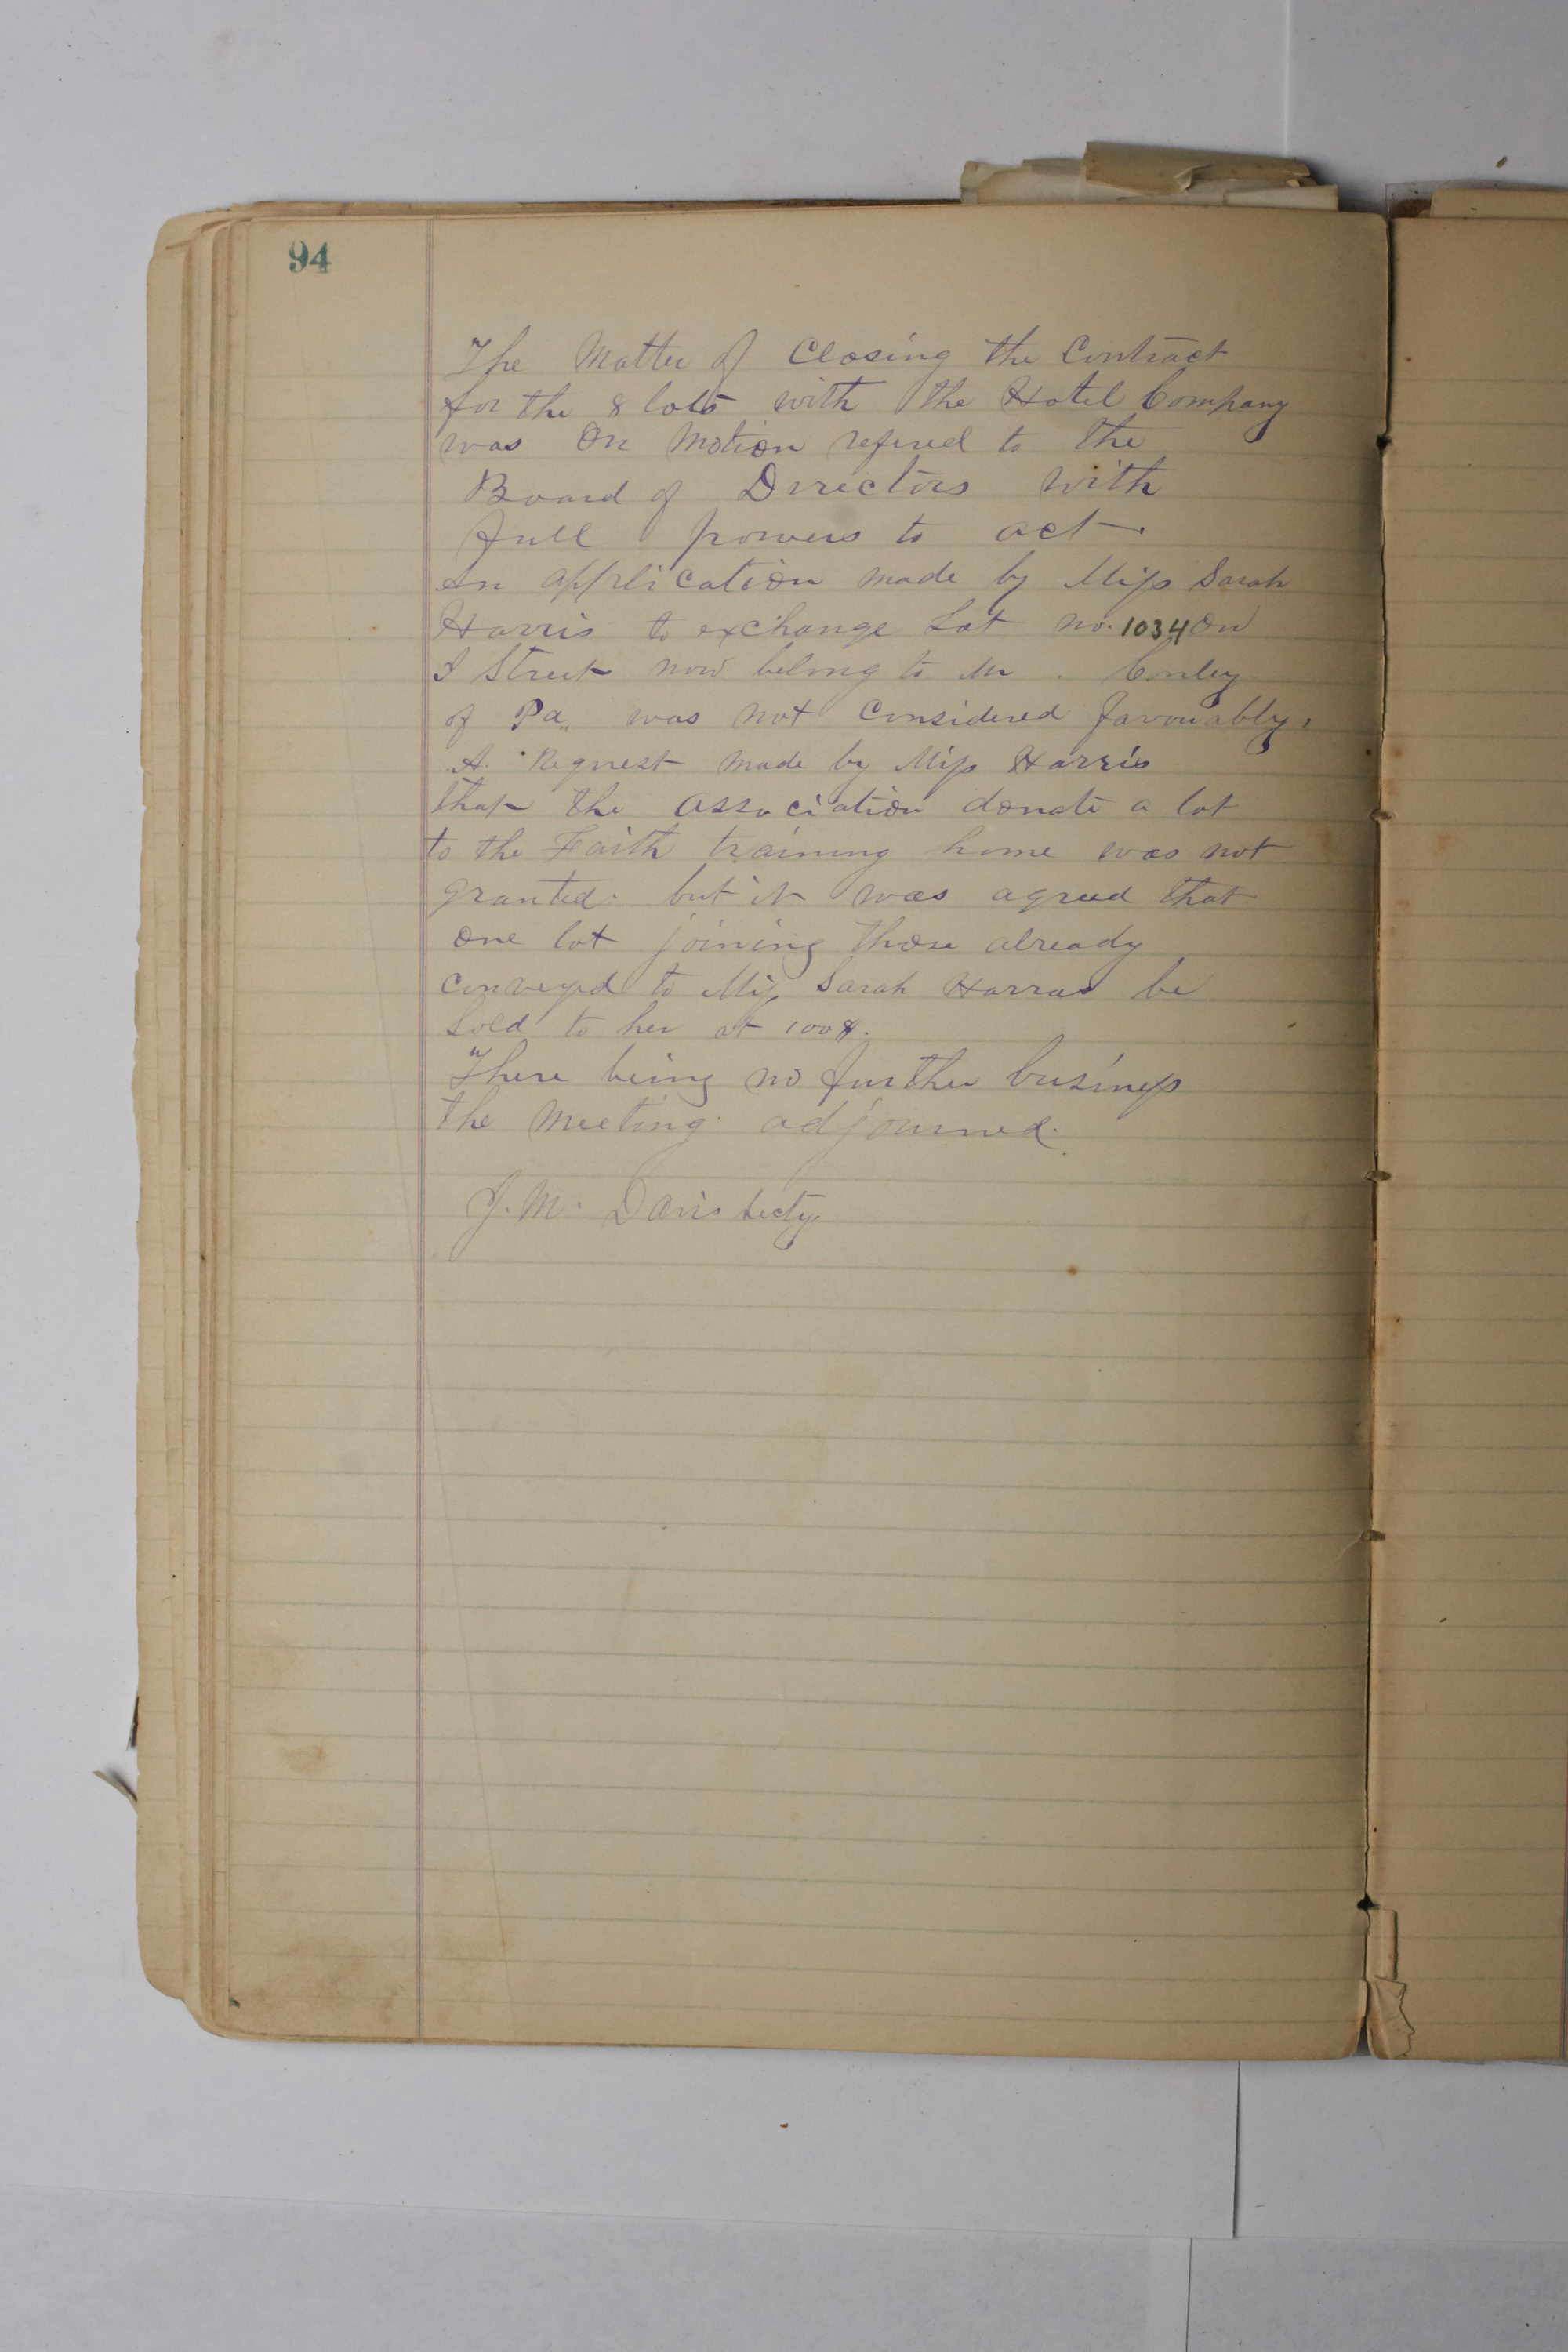 94
The Matter of Closing the Contract
for the 8 lots with the Hotel Company
was On Motion refered to the
Board of Directors with
full powers to act.
An application made by Miss Sarah
Harris to exchange Lot no. 1034 On
I Street now belong to Mr. Conley
of Pa. was not Considered favourably.
A Request made by Miss Harris
that the association donate a lot
to the Faith training home was not
granted. but it was agreed that
one lot joining those already
conveyed to Miss Sarah Harras be
Sold to her at 100$.
There being no further business
the Meeting adjourned.
J. M. Davis Secty.